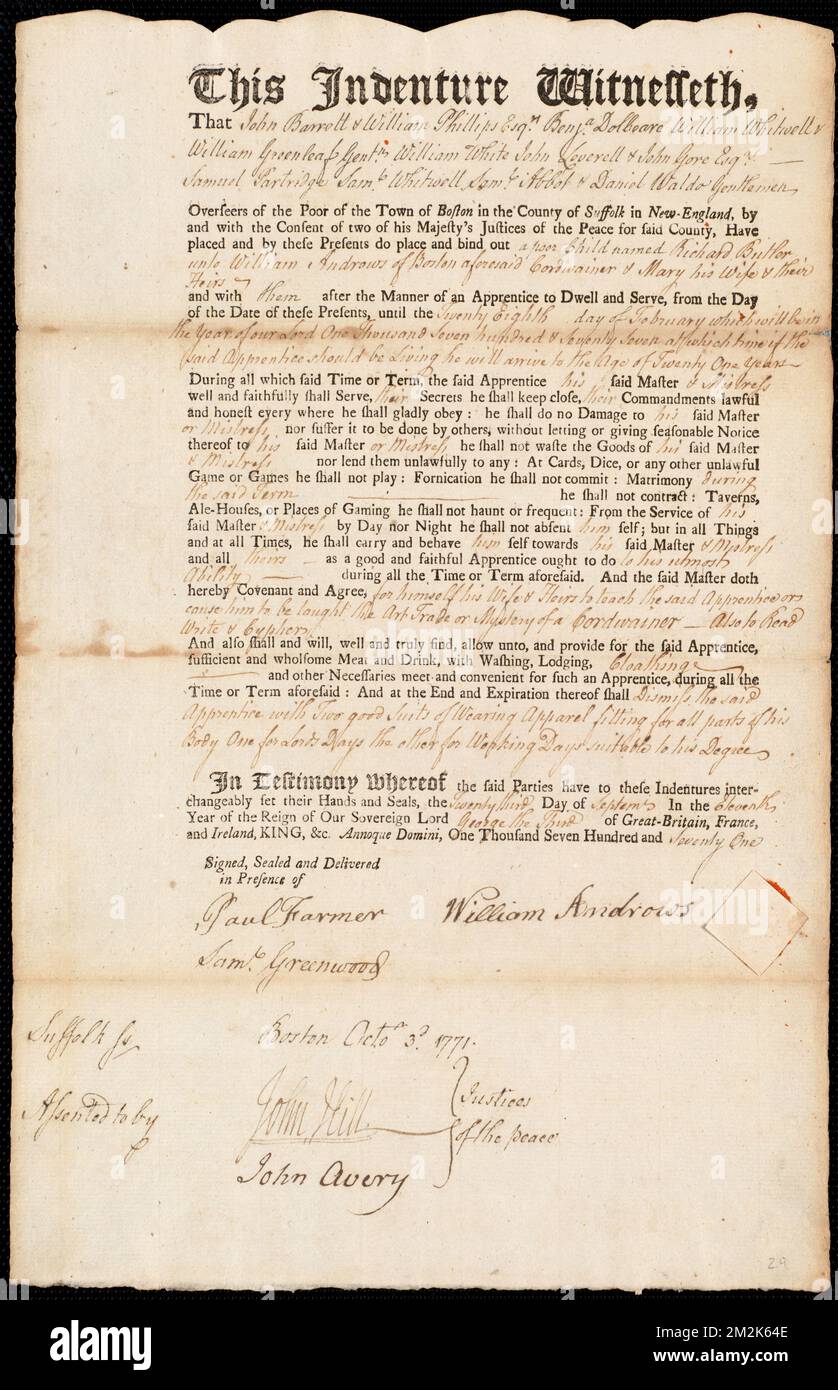 This Indenture Witnesseth,
That John Barrett & William Phillips Esqrs Benja. Dolbeare William Whitwell &
William Greenleaf Gentn William White John Leverell & John Gore Esqrs —
Samuel Partridge Saml. Whitwell Saml. Abbot & Daniel Waldo Gentlemen
Overseers of the Poor of the Town of Boston in the County of Suffolk in New-England, by
and with the Consent of two of his Majesty's Justices of the Peace for said County, Have
placed and by these Presents do place and bind out a poor Child named Richard Butler
unto William Androws of Boston aforesaid Cordwainer & Mary his Wife & their
Heirs
and with them after the Manner of an Apprentice to Dwell and Serve, from the Day
of the Date of these Presents, until the Twenty Eighth day of February which will be in
the Year of our Lord One Thousand Seven hundred & Seventy Seven at which time if the
said Apprentice should be Living he will arrive to the Age of Twenty One Years —
During all which said Time or Term, the said Apprentice his said Master & Mistress
well and faithfully shall Serve, their Secrets he shall keep close, their Commandments lawful
and honest eyery where he shall gladly obey : he shall do no Damage to his said Master
or Mistress nor suffer it to be done by others, without letting or giving seasonable Notice
thereof to his said Master or Mistress he shall not waste the Goods of his said Master
& Mistress nor lend them unlawfully to any : At Cards, Dice, or any other unlawful
Game or Games he shall not play : Fornication he shall not commit : Matrimony during
the said Term — he shall not contract : Taverns,
Ale-Houses, or Places of Gaming he shall not haunt or frequent : From the Service of his
said Master & Mistress by Day nor Night he shall not absent him self ; but in all Things
and at all Times, he shall carry and behave him self towards his said Master & Mistress
and all theirs — as a good and faithful Apprentice ought to do to his utmost
Ability — during all the Time or Term aforesaid. And the said Master doth
hereby Covenant and Agree, for himself his Wife & Heirs to teach the said Apprentice or
cause him to be taught the Art Trade or Mystery of a Cordwainer — Also to Read
Write & Cypher,
And also shall and will, well and truly find, allow unto, and provide for the said Apprentice,
sufficient and wholsome Meat and Drink, with Washing, Lodging, Cloathing
— and other Necessaries meet and convenient for such an Apprentice, during all the
Time or Term aforesaid : And at the End and Expiration thereof shall Dismiss the said
Apprentice with Two good Suits of Wearing Apparel fitting for all parts of his
Body One for Lords Days the other for Working Days suitable to his Degree
In Testimony whereof the said Parties have to these Indentures inter-
changeably set their Hands and Seals, the Twenty third Day of Septemr In the Eleventh
Year of the Reign of Our Sovereign Lord George the Third of Great-Britain, France,
and Ireland, KING, &c. Annoque Domini, One Thousand Seven Hundred and Seventy One
Signed, Sealed and Delivered
in Presence of
Paul Farmer William Androws
Saml. Greenwood
Suffolk Ss Boston Octor 3d. 1771.
Assented to by John Hill Justices
John Avery of the peace
29
alamy
Image ID: 2M2K64E
www.alamy.com